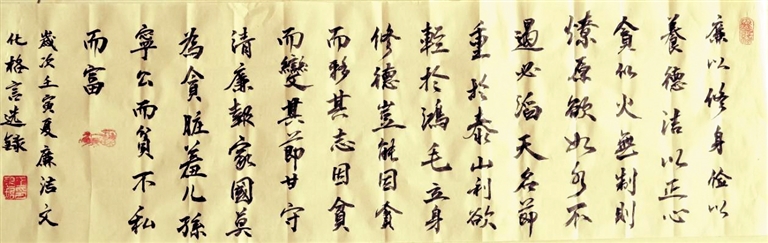 廉以修身俭以
養德洁以正心
貪似火無制則
燎原欲如水不
遏必滔天名節
重於泰山利欲
輕於鴻毛立身
修德豈能因貪
而移其志因貧
而變其節甘守
清廉報家國莫
為貪贓羞儿孫
寧公而貧不私
而富
歲次壬寅夏廉洁文
化格言选録